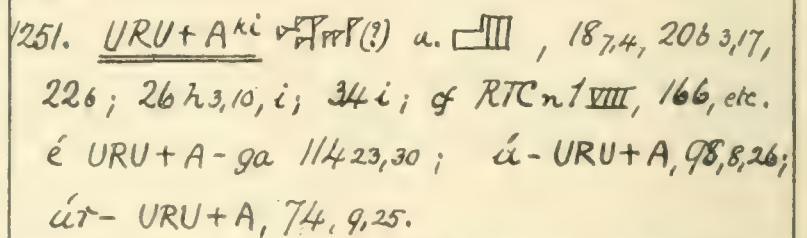 1251. URU + A ki (?) u. , 18 7,4, 20 b 3,17,
22 6; 26 h 3,10, i; 34 i; cf RTC n 1 VIII, 166, etc.
é URU + A - ga 114 23,30; ú - URU + A, 98, 8,26;
úr - URU + A, 74, 9,25.